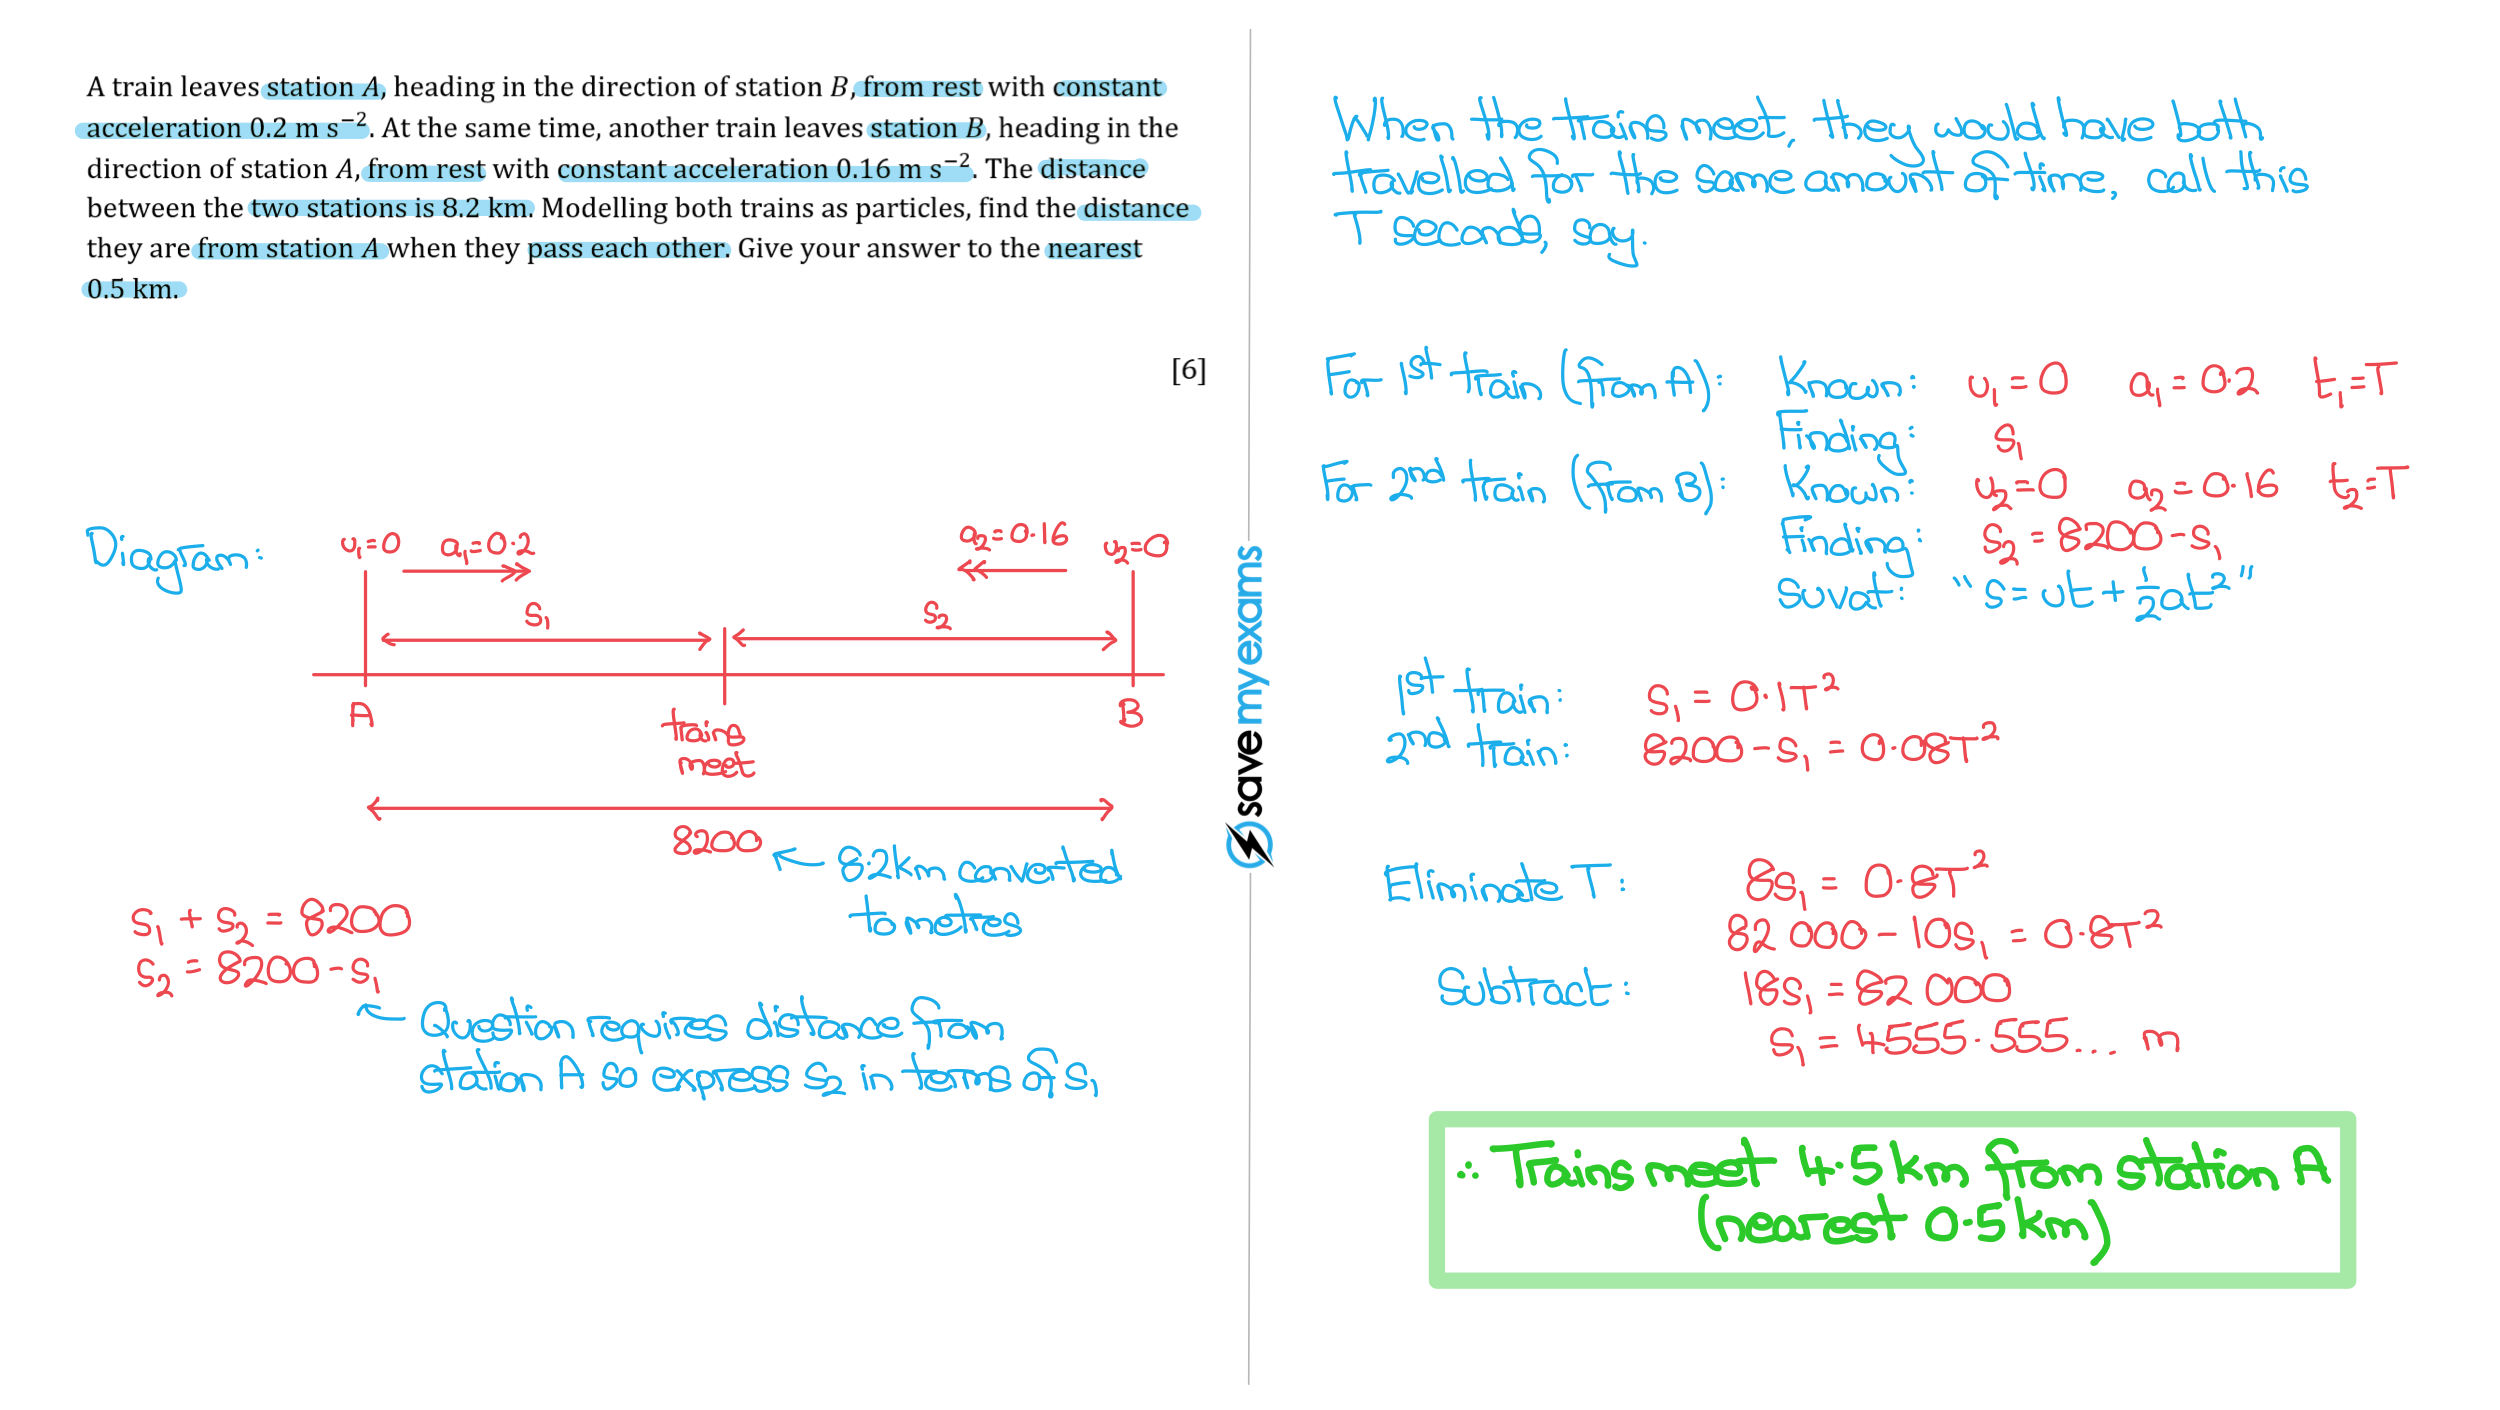 A train leaves station A, heading in the direction of station B, from rest with constant
acceleration 0.2 m s⁻². At the same time, another train leaves station B, heading in the
direction of station A, from rest with constant acceleration 0.16 m s⁻². The distance
between the two stations is 8.2 km. Modelling both trains as particles, find the distance
they are from station A when they pass each other. Give your answer to the nearest
0.5 km.
[6]
Diagram:
u₁=0 a₁=0·2 a₂=0·16 u₂=0
s₁ s₂
A B
trains
meet
8200
8·2km converted
to metres
s₁ + s₂ = 8200
s₂ = 8200 - s₁
Question requires distance from
station A so express s₂ in terms of s₁
save my exams
When the trains meet, they would have both
travelled for the same amount of time, call this
T seconds, say.
For 1st train (from A): Known: u₁=0 a₁=0·2 t₁=T
Finding: s₁
For 2nd train (from B): Known: u₂=0 a₂=0·16 t₂=T
Finding: s₂=8200-s₁
suvat: "s=ut+½at²"
1st train: s₁ = 0·1T²
2nd train: 8200-s₁ = 0·08T²
Eliminate T: 8s₁ = 0·8T²
82 000 - 10s₁ = 0·8T²
Subtract: 18s₁ = 82 000
s₁ = 4555·555... m
∴ Trains meet 4·5km from station A
(nearest 0·5km)